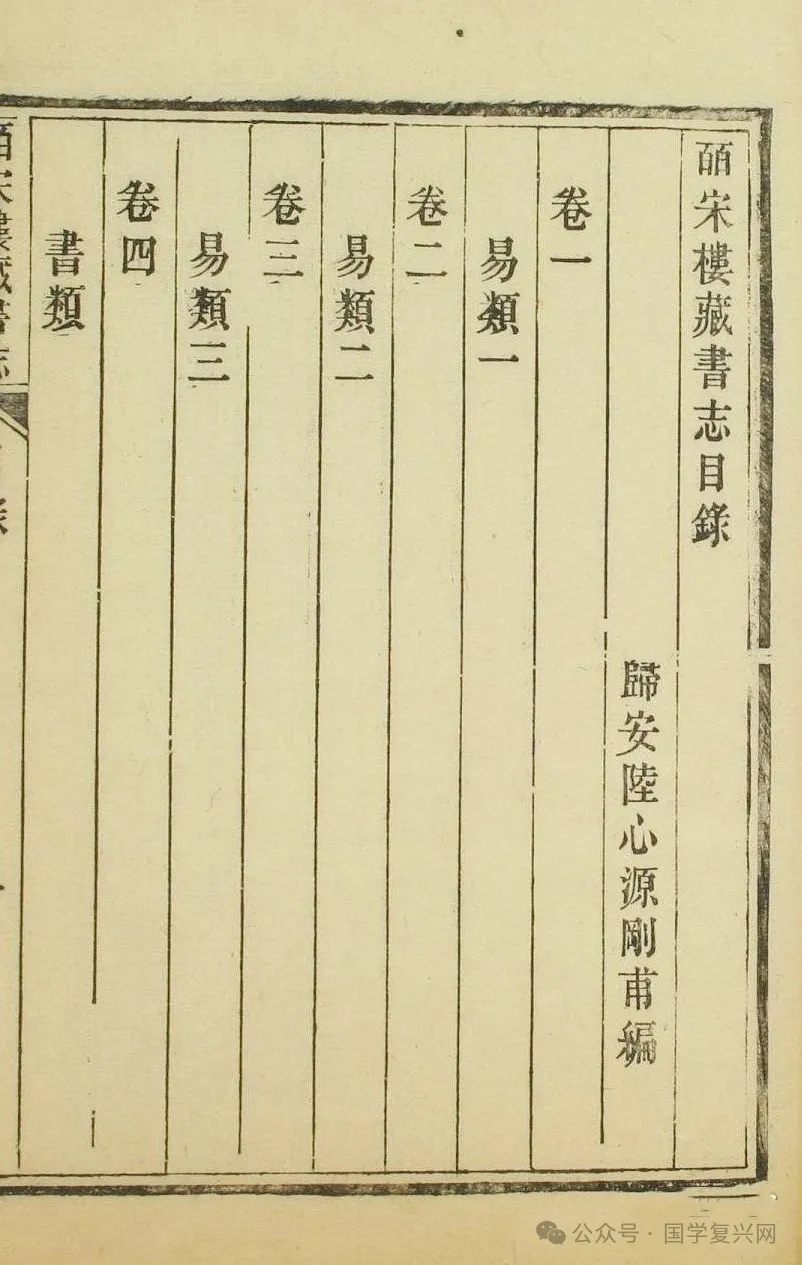 皕宋樓藏書志目錄
歸安陸心源剛甫編
卷一
易類一
卷二
易類二
卷三
易類三
卷四
書類
皕宋樓藏書志
公众号 · 国学复兴网